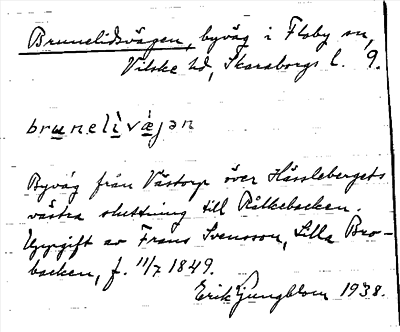 Brunelidsvägen, byväg i Floby sn,
Vilske hd, Skaraborgs l. 9.
brunelìvæ̀jən
Byväg från Västorp över Hässlebergets
västra sluttning till Rålkebacken.
Uppgift av Frans Svensson, Lilla Bro-
backen, f. 11/7 1849.
Erik Ljungblom 1938.